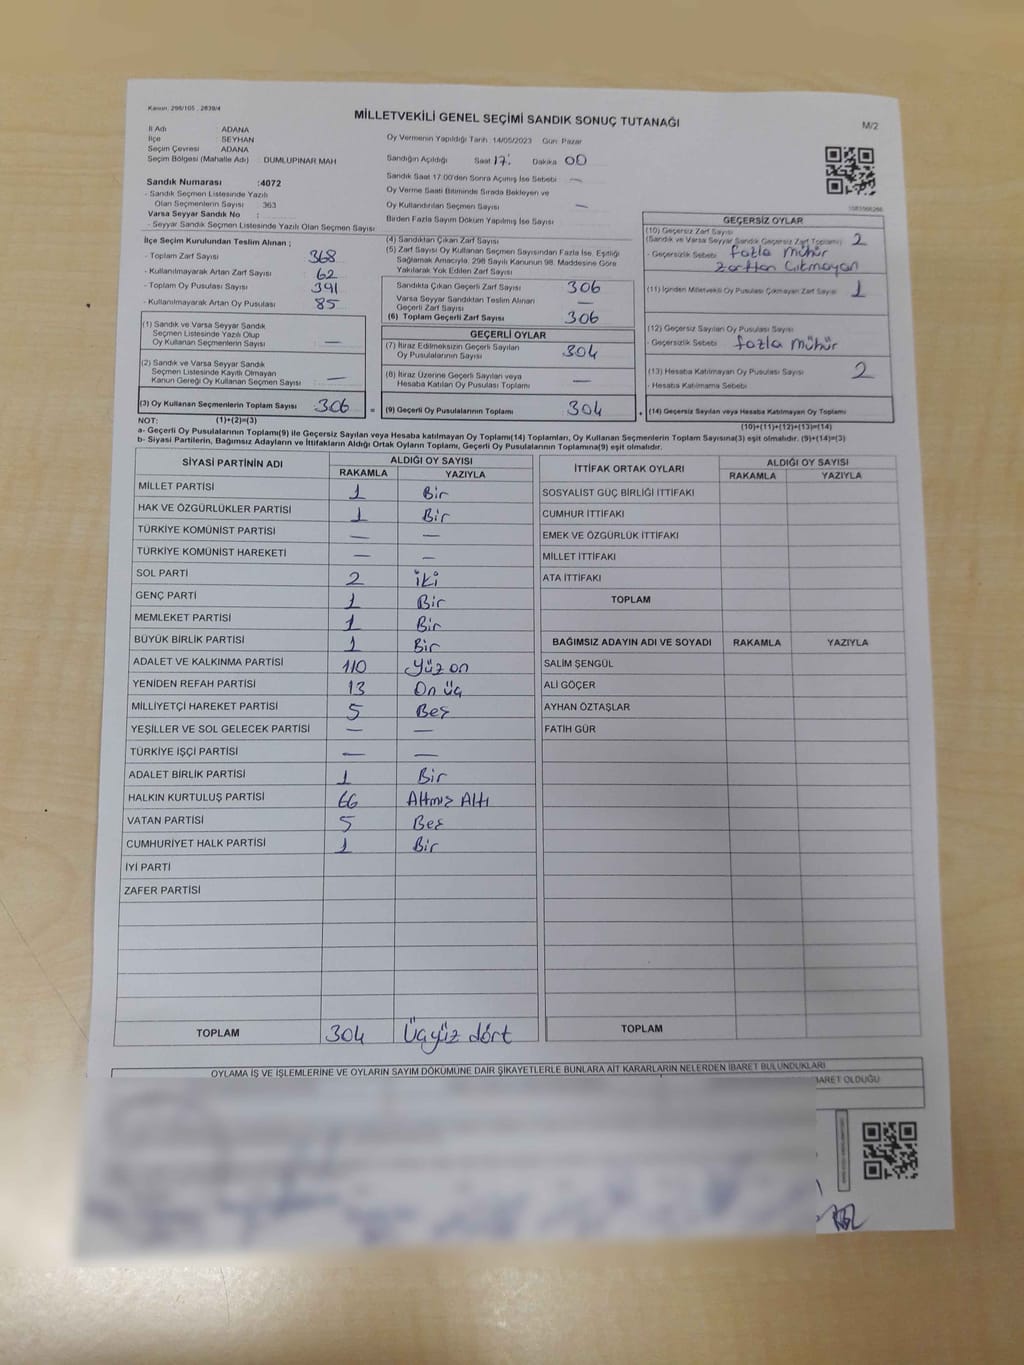 Kanun: 298/105 , 2839/4
MİLLETVEKİLİ GENEL SEÇİMİ SANDIK SONUÇ TUTANAĞI
M/2
İl Adı : ADANA
İlçe : SEYHAN
Seçim Çevresi : ADANA
Seçim Bölgesi (Mahalle Adı) : DUMLUPINAR MAH
Oy Vermenin Yapıldığı Tarih 14/05/2023 Gün: Pazar
Sandığın Açıldığı Saat 17: Dakika 00
Sandık Saat 17:00'den Sonra Açılmış İse Sebebi —
Oy Verme Saati Bitiminde Sırada Bekleyen ve
Oy Kullandırılan Seçmen Sayısı —
Birden Fazla Sayım Döküm Yapılmış İse Sayısı
Sandık Numarası :4072
- Sandık Seçmen Listesinde Yazılı
Olan Seçmenlerin Sayısı : 363
Varsa Seyyar Sandık No :
- Seyyar Sandık Seçmen Listesinde Yazılı Olan Seçmen Sayısı
İlçe Seçim Kurulundan Teslim Alınan ;
- Toplam Zarf Sayısı : 368
- Kullanılmayarak Artan Zarf Sayısı : 62
- Toplam Oy Pusulası Sayısı : 391
- Kullanılmayarak Artan Oy Pusulası : 85
(1) Sandık ve Varsa Seyyar Sandık
Seçmen Listesinde Yazılı Olup
Oy Kullanan Seçmenlerin Sayısı : —
(2) Sandık ve Varsa Seyyar Sandık
Seçmen Listesinde Kayıtlı Olmayan
Kanun Gereği Oy Kullanan Seçmen Sayısı : —
(3) Oy Kullanan Seçmenlerin Toplam Sayısı : 306
(1)+(2)=(3)
(4) Sandıktan Çıkan Zarf Sayısı
(5) Zarf Sayısı Oy Kullanan Seçmen Sayısından Fazla İse, Eşitliği
Sağlamak Amacıyla, 298 Sayılı Kanunun 98. Maddesine Göre
Yakılarak Yok Edilen Zarf Sayısı
Sandıkta Çıkan Geçerli Zarf Sayısı 306
Varsa Seyyar Sandıktan Teslim Alınan
Geçerli Zarf Sayısı —
(6) Toplam Geçerli Zarf Sayısı 306
GEÇERLİ OYLAR
(7) İtiraz Edilmeksizin Geçerli Sayılan
Oy Pusulalarının Sayısı 304
(8) İtiraz Üzerine Geçerli Sayılan veya
Hesaba Katılan Oy Pusulası Toplamı —
= (9) Geçerli Oy Pusulalarının Toplamı 304
GEÇERSİZ OYLAR
(10) Geçersiz Zarf Sayısı
(Sandık ve Varsa Seyyar Sandık Geçersiz Zarf Toplamı) 2
- Geçersizlik Sebebi : fazla mühür
zarftan Çıkmayan
(11) İçinden Milletvekili Oy Pusulası Çıkmayan Zarf Sayısı 1
(12) Geçersiz Sayılan Oy Pusulası Sayısı
- Geçersizlik Sebebi : fazla mühür
(13) Hesaba Katılmayan Oy Pusulası Sayısı 2
- Hesaba Katılmama Sebebi
+ (14) Geçersiz Sayılan veya Hesaba Katılmayan Oy Toplamı
(10)+(11)+(12)+(13)=(14)
NOT:
a- Geçerli Oy Pusulalarının Toplamı(9) ile Geçersiz Sayılan veya Hesaba katılmayan Oy Toplamı(14) Toplamları, Oy Kullanan Seçmenlerin Toplam Sayısına(3) eşit olmalıdır. (9)+(14)=(3)
b- Siyasi Partilerin, Bağımsız Adayların ve İttifakların Aldığı Ortak Oyların Toplamı, Geçerli Oy Pusulalarının Toplamına(9) eşit olmalıdır.
SİYASİ PARTİNİN ADI ALDIĞI OY SAYISI
RAKAMLA YAZIYLA
MİLLET PARTİSİ 1 Bir
HAK VE ÖZGÜRLÜKLER PARTİSİ 1 Bir
TÜRKİYE KOMÜNİST PARTİSİ — —
TÜRKİYE KOMÜNİST HAREKETİ — —
SOL PARTİ 2 iki
GENÇ PARTİ 1 Bir
MEMLEKET PARTİSİ 1 Bir
BÜYÜK BİRLİK PARTİSİ 1 Bir
ADALET VE KALKINMA PARTİSİ 110 Yüz on
YENİDEN REFAH PARTİSİ 13 On üç
MİLLİYETÇİ HAREKET PARTİSİ 5 Beş
YEŞİLLER VE SOL GELECEK PARTİSİ — —
TÜRKİYE İŞÇİ PARTİSİ — —
ADALET BİRLİK PARTİSİ 1 Bir
HALKIN KURTULUŞ PARTİSİ 66 Altmış Altı
VATAN PARTİSİ 5 Beş
CUMHURİYET HALK PARTİSİ 1 Bir
İYİ PARTİ
ZAFER PARTİSİ
TOPLAM 304 Üçyüz dört
İTTİFAK ORTAK OYLARI ALDIĞI OY SAYISI
RAKAMLA YAZIYLA
SOSYALİST GÜÇ BİRLİĞİ İTTİFAKI
CUMHUR İTTİFAKI
EMEK VE ÖZGÜRLÜK İTTİFAKI
MİLLET İTTİFAKI
ATA İTTİFAKI
TOPLAM
BAĞIMSIZ ADAYIN ADI VE SOYADI RAKAMLA YAZIYLA
SALİM ŞENGÜL
ALİ GÖÇER
AYHAN ÖZTAŞLAR
FATİH GÜR
TOPLAM
OYLAMA İŞ VE İŞLEMLERİNE VE OYLARIN SAYIM DÖKÜMÜNE DAİR ŞİKAYETLERLE BUNLARA AİT KARARLARIN NELERDEN İBARET BULUNDUKLARI
İBARET OLDUĞU